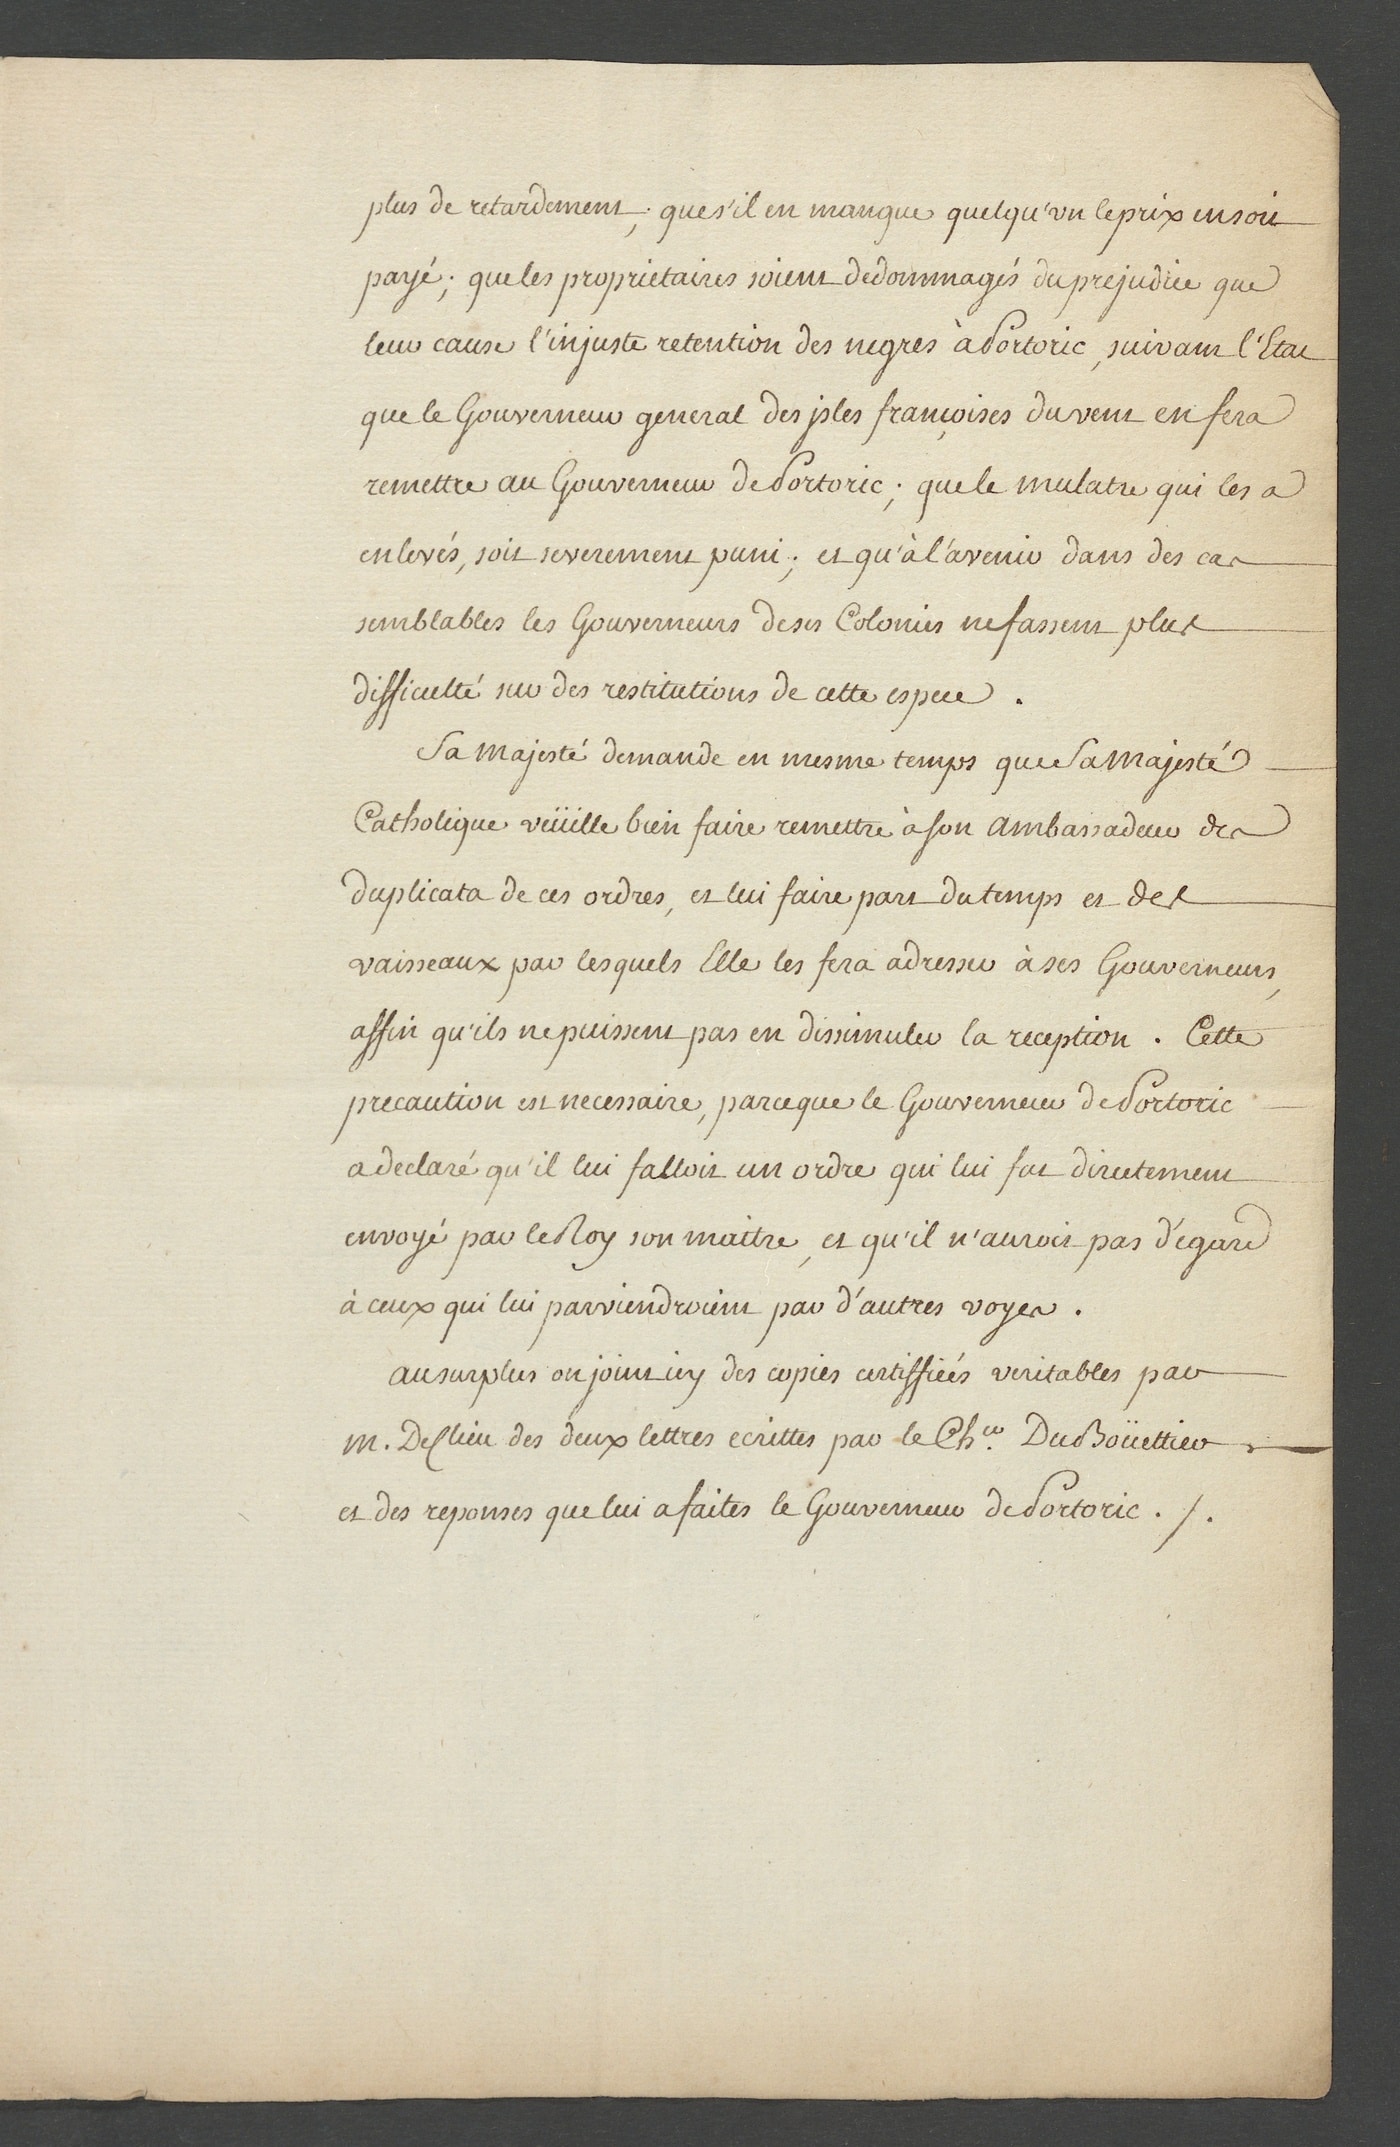 plus de retardement; que s'il en manque quelqu'vn le prix en soit
payé; que les proprietaires soient dedommagés du prejudice que
leur cause l'injuste retention des negres à Portoric, suivant l'Etat
que le Gouverneur general des jsles françoises du vent en fera
remettre au Gouverneur de Portoric; que le mulatre qui les a
enlevés, soit severement puni; et qu'à l'avenir dans des cas
semblables les Gouverneurs de ses Colonies ne fassent plus
difficulté sur des restitutions de cette espece.
Sa Majesté demande en mesme temps que Sa Majesté
Catholique veüille bien faire remettre à son Ambassadeur des
duplicata de ces ordres, et lui faire part du temps et des
vaisseaux par lesquels Elle les fera adresser à ses Gouverneurs,
affin qu'ils ne puissent pas en dissimuler la reception. Cette
precaution est necessaire, parceque le Gouverneur de Portoric
a declaré qu'il lui falloit un ordre qui lui fut directement
envoyé par le Roy son maitre, et qu'il n'auroit pas d'egard
à ceux qui lui parviendroient par d'autres voyes.
au surplus on joint icy des copies certiffiées veritables par
M. Declieu des deux lettres ecrittes par le Ch.er Du Boüettier
et des reponses que lui a faites le Gouverneur de Portoric. /.